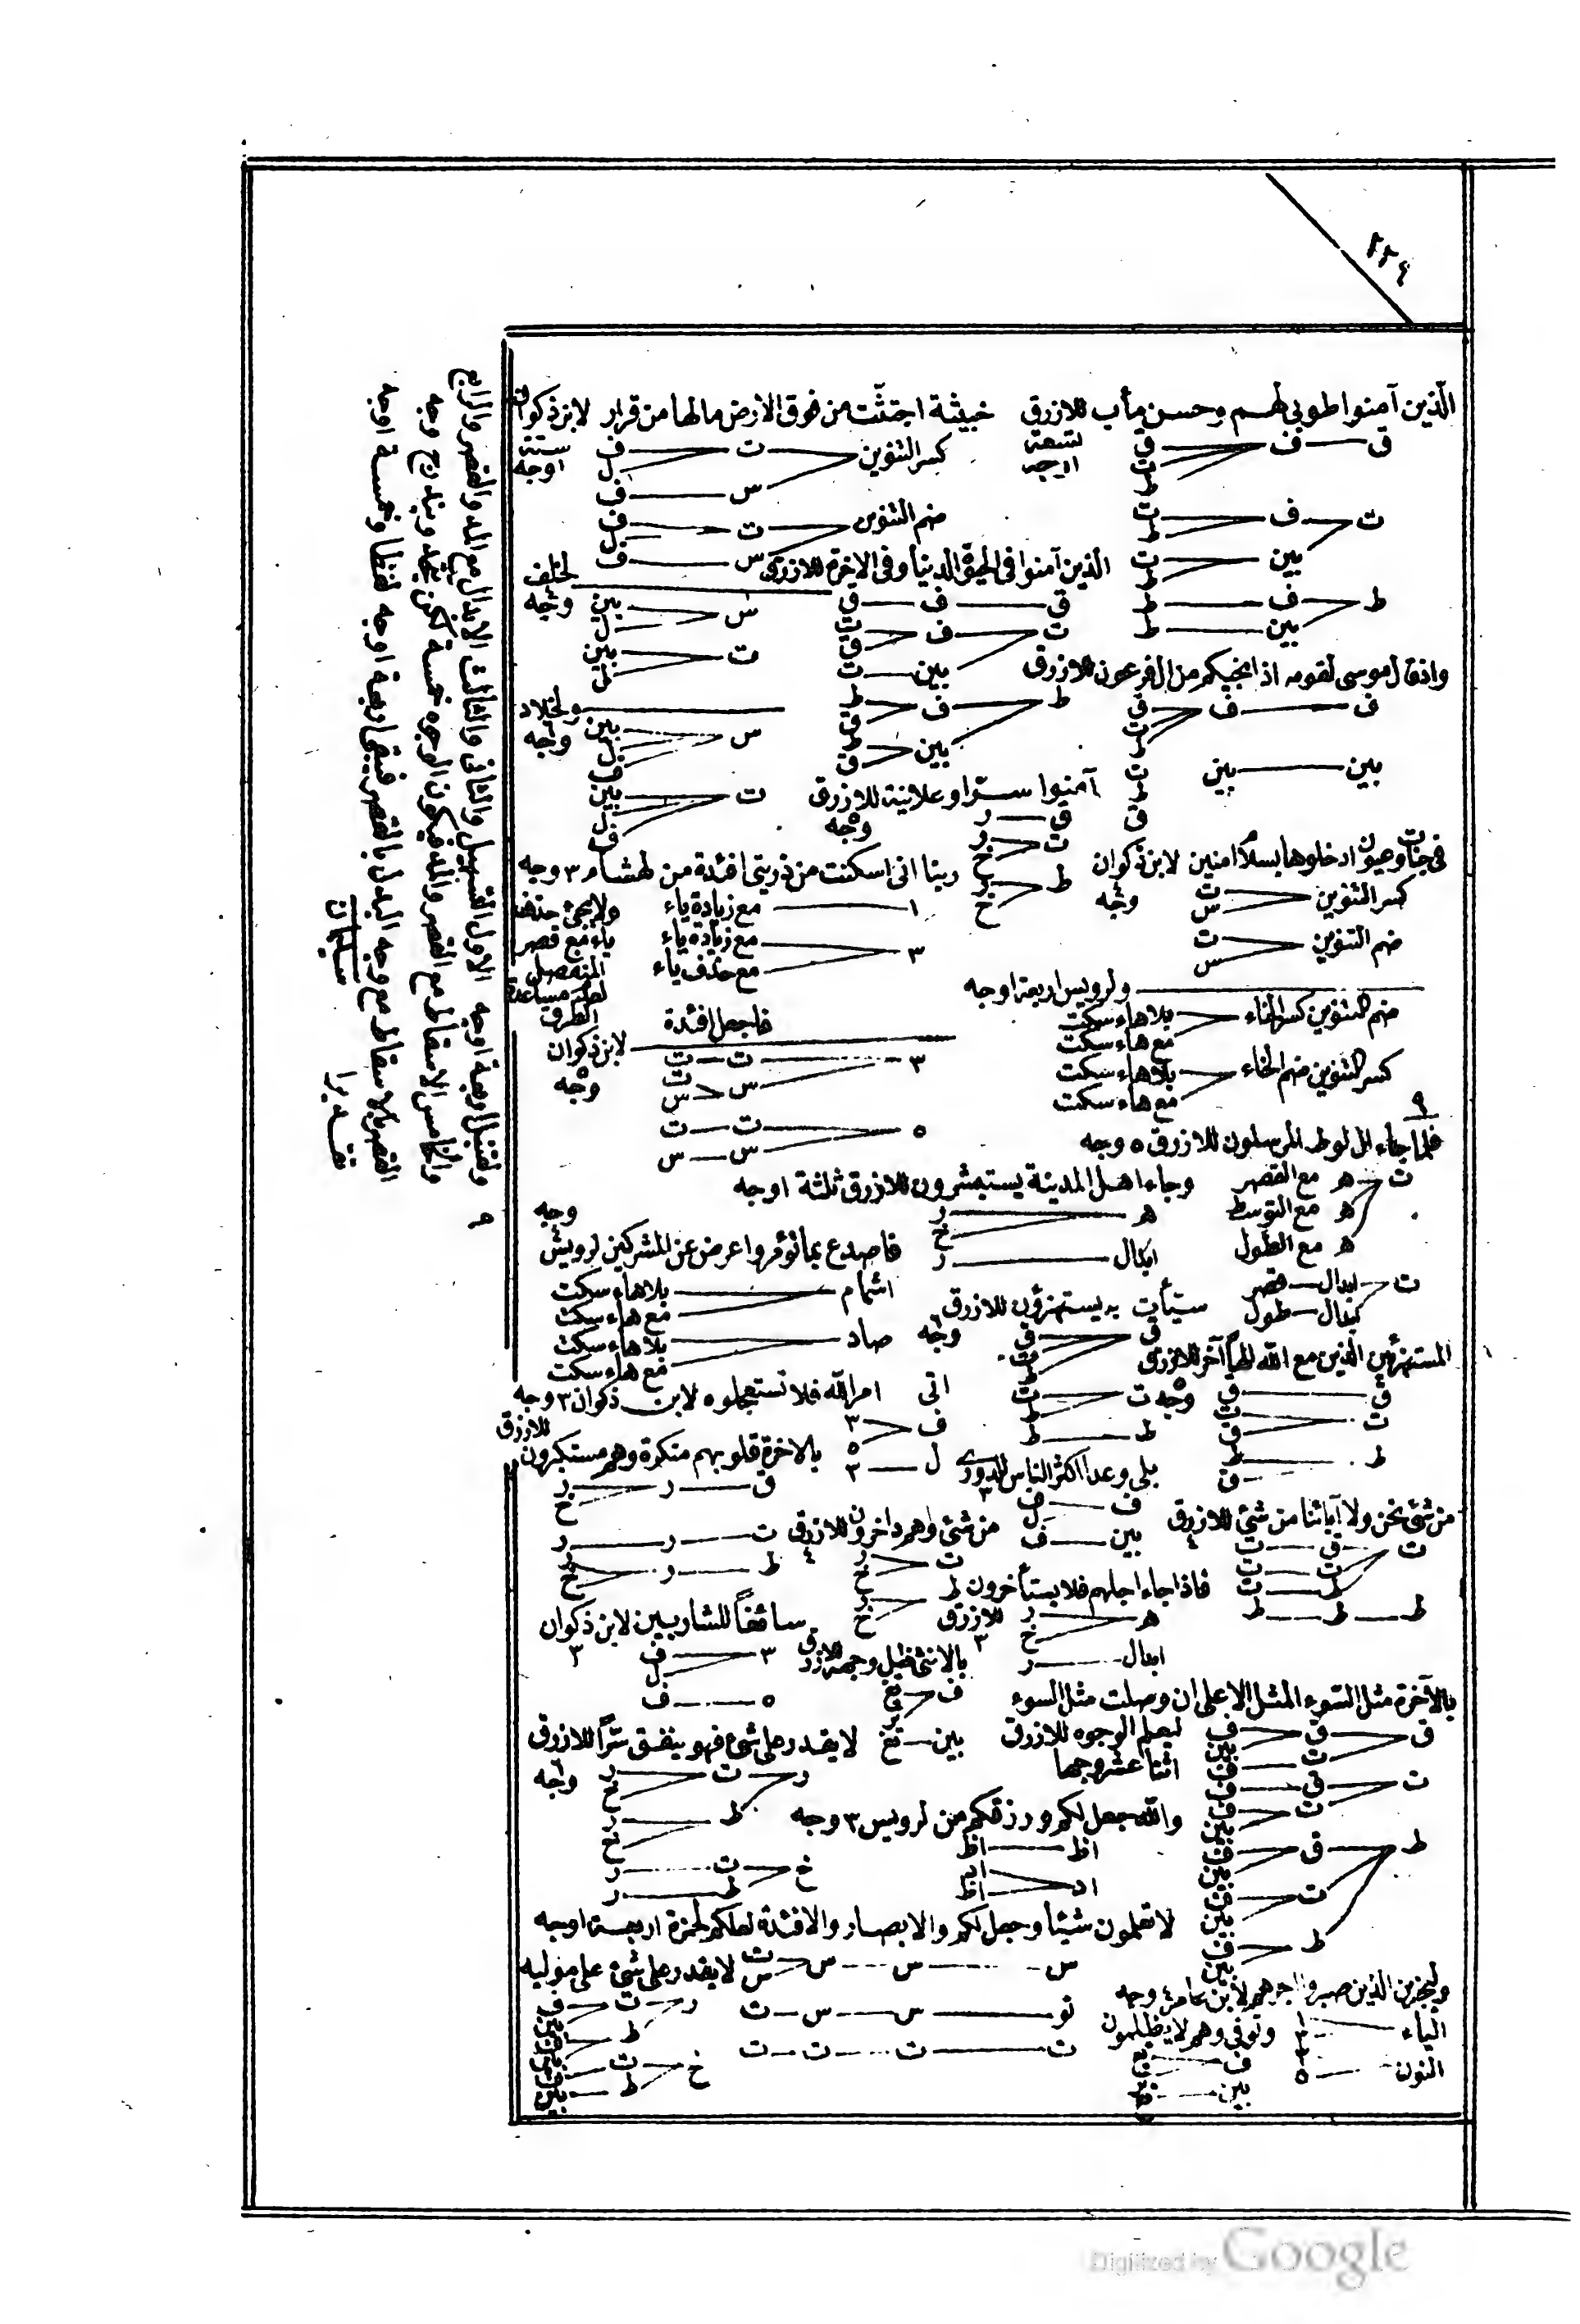 ٢٢٤
الّذين آمنوا طوبى لهم وحسن مأب للازرق تسعة اوجه
ق ف ق
ت
ط
ت ف ت
ط
بين ت
ط
ط ف ط
بين ط
خبيثة اجتثّت من فوق الارض مالها من قرار لابن ذكوان ستة اوجه
كسر التنوين ت ف
ل
س ف
ضم التنوين ت ف
ل
س ف
الذين آمنوا فى الحيوة الدنيا وفى الاخرة للازرق
ق ف ق
ت ف ت
ق
بين ت
ط ف ط
ق
بين ط
ق
لخلف ٤ وجه
س بين
ل
ت بين
ل
واذ قال موسى لقومه اذ انجيكم من ال فرعون للازرق
ف ف ق
ت
ط
بين بين ت
ط
ق
ولخلاد ٦ وجه
س بين
ل
ف
ت بين
ل
ف
آمنوا سرا وعلانية للازرق ٥ وجه
ق ر
ت ر
خ
ط ر
خ
فى جنات وعيون ادخلوها بسلام امنين لابن ذكوان ٤ وجه
كسر التنوين ت
س
ضم التنوين ت
س
ربنا انى اسكنت من ذريتى افئدة من لهشام ٣ وجه
١ مع زيادة ياء
٣ مع زيادة ياء
مع حذف ياء
ولا يجئ حذف
ياء مع قصر
المنفصل
لعدم مساعدة
الطرق
ولرويس اربعة اوجه
ضم التنوين كسر الخاء بلا هاء سكت
مع هاء سكت
كسر التنوين ضم الخاء بلا هاء سكت
مع هاء سكت
فاجعل افئدة لابن ذكوان ٥ وجه
٣ ت ت
س ت
س
٥ ت ت
س س
٩
فلما جاء ال لوط المرسلون للازرق ٥ وجه
ت ه مع القصر
ه مع التوسط
ه مع الطول
ت ابدال قصر
ابدال طول
وجاء اهل المدينة يستبشرون للازرق ثلثة اوجه
ه ر
خ
ابدال ر
فاصدع بما تؤمر واعرض عن المشركين لرويس ٤ وجه
اشمام بلا هاء سكت
مع هاء سكت
صاد بلا هاء سكت
مع هاء سكت
به يستهزؤن للازرق ٦ وجه
ق ق
ت
ط
ت ت
ط
ط ط
المستهزئين الذين مع الله الها آخر للازرق ٥ وجه
ق ق
ت ت
ق
ط ط
ق
اتى امر الله فلا تستعجلوه لابن ذكوان ٣ وجه
ف ٣
٥
ل ٣
بالاخرة قلوبهم منكرة وهم مستكبرون للازرق
ق ر ر
خ
ت ر ر
ط ر ر
خ
بلى وعدا اكثر الناس للدورى ٣
ف ف
ل
بين ف
من شئ نحن ولا آبائنا من شئ للازرق ٤
ت ق ت
ت ت
ط ت
ط ط ط
من شئ وهم داخرون للازرق ٤
ت ر
خ
ط ر
خ
فاذا جاء اجلهم فلا يستأخرون للازرق ٣
ه ر
خ
ابدال ر
سائغاً للشاربين لابن ذكوان ٣
٣ ف
ل
٥ ف
بالانثى ظل وجهه للازرق
ف تغ
تر
بين تغ
بالآخرة مثل السّوء المثل الاعلى ان وصلت مثل السوء
ليعلم الوجوه للازرق
اثنا عشر وجها
ق ق ف
بين
ت ف
ت ق ف
ت ف
بين
ط ق ف
بين
ت ف
بين
ط ف
بين
لا يقدر على شئ فهو ينفق سرّاً للازرق ٦ وجه
ر ت ر
خ
ط ر
خ
خ ت ر
ط ر
والله جعل لكم ورزقكم من لرويس ٣ وجه
اظ اظ
اد اد
اظ
لا تعلمون شيئا وجعل لكم والابصار والافئدة لعلكم لحمزة اربعة اوجه
س س س ت
س
تو س س ت
ت ت ت ت
ولنجزين الذين صبروا اجرهم لابن عامر ٤ وجه
الياء
النون ٥
وتوفى وهم لا يظلمون
ف تغ
بين
لا يقدر على شئ على موليه
ر ت ف
بين
ط ف
بين
خ ت ف
ط بين
ولقنبل اربعة اوجه الاول التسهيل والثانى والثالث الابدال مع المد والقصر والرابع
والخامس الاسقاط مع القصر والمد فيكون الوجوه خمسة لكن يتحد ويندرج وجه
القصر بالاسقاط مع وجه البدل بالقصر فيبقى اربعة اوجه لفظا وخمسة اوجه
تقديرا سليمان
٩
Digitized by Google